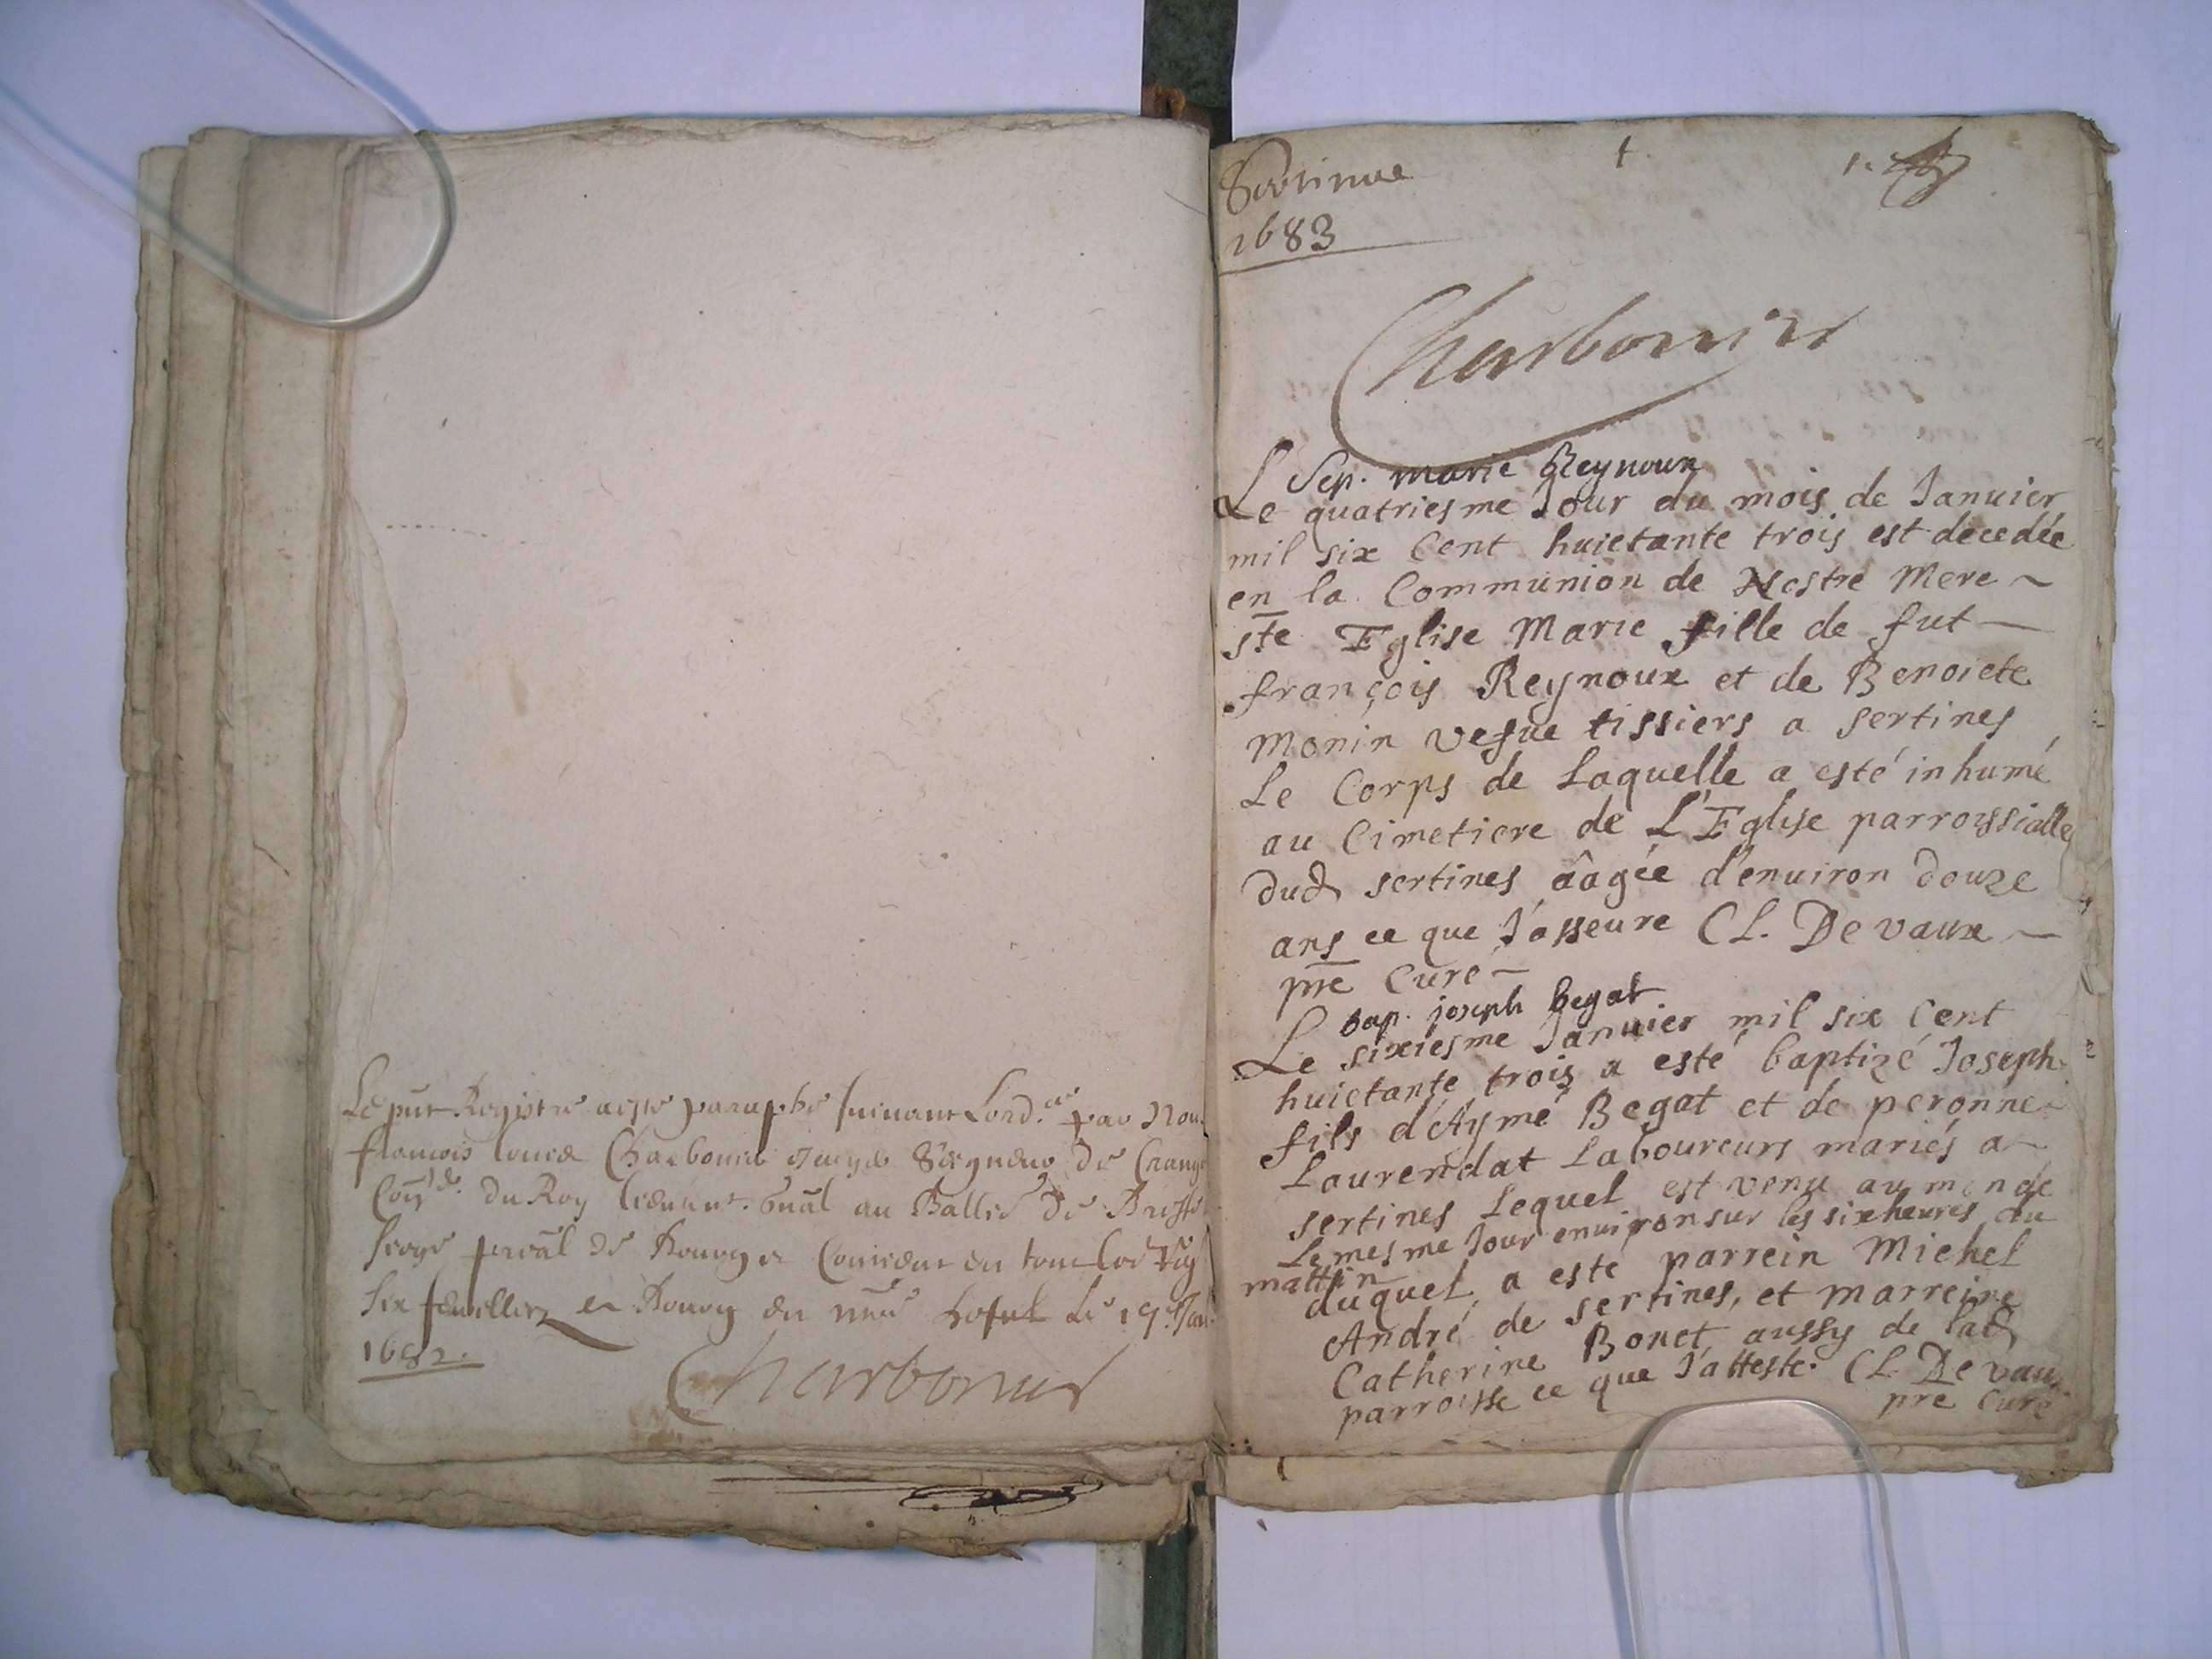 Le pnt Registre a esté paraphé suivant Lord.ce par Nou
francois louis Charbonier Seigneur de Crang
Con.er du Roy lieutenant gnâl au Balliage de Bresse
siege pñal de Bourg contenant en tout
six feuillez a Bourg en nre hostel le 19e Jan
1682.
Charbonier
Sertines
1683
1
1.
Charbonier
Sep. marie Reynoux
Le quatriesme Jour du mois de Januier
mil six Cent huictante trois est decedée
en la Communion de Nostre Mere ~
ste Eglise Marie fille de fut —
françois Reynoux et de Benoicte
Monin vefue tissiers a sertines
Le Corps de Laquelle a esté inhumé
au Cimetiere de L'Eglise parroissialle
dud sertines âagée d'enuiron douze
ans ce que J'asseure CL. De vaux ~
pre Curé ~
bap. joseph begat
Le sixiesme Januier mil six Cent
huictante trois a esté baptizé Joseph
fils d'Aymé Begat et de peronne
Laurendat Laboureurs mariés a ~
sertines Lequel est venu au monde
Le mesme Jour enuiron sur les six heures du
mattin
duquel a esté parrein Michel
André de sertines, et marreine
Catherine Bonet aussy de lad
parroisse ce que J'atteste. CL. De vaux
pre Curé